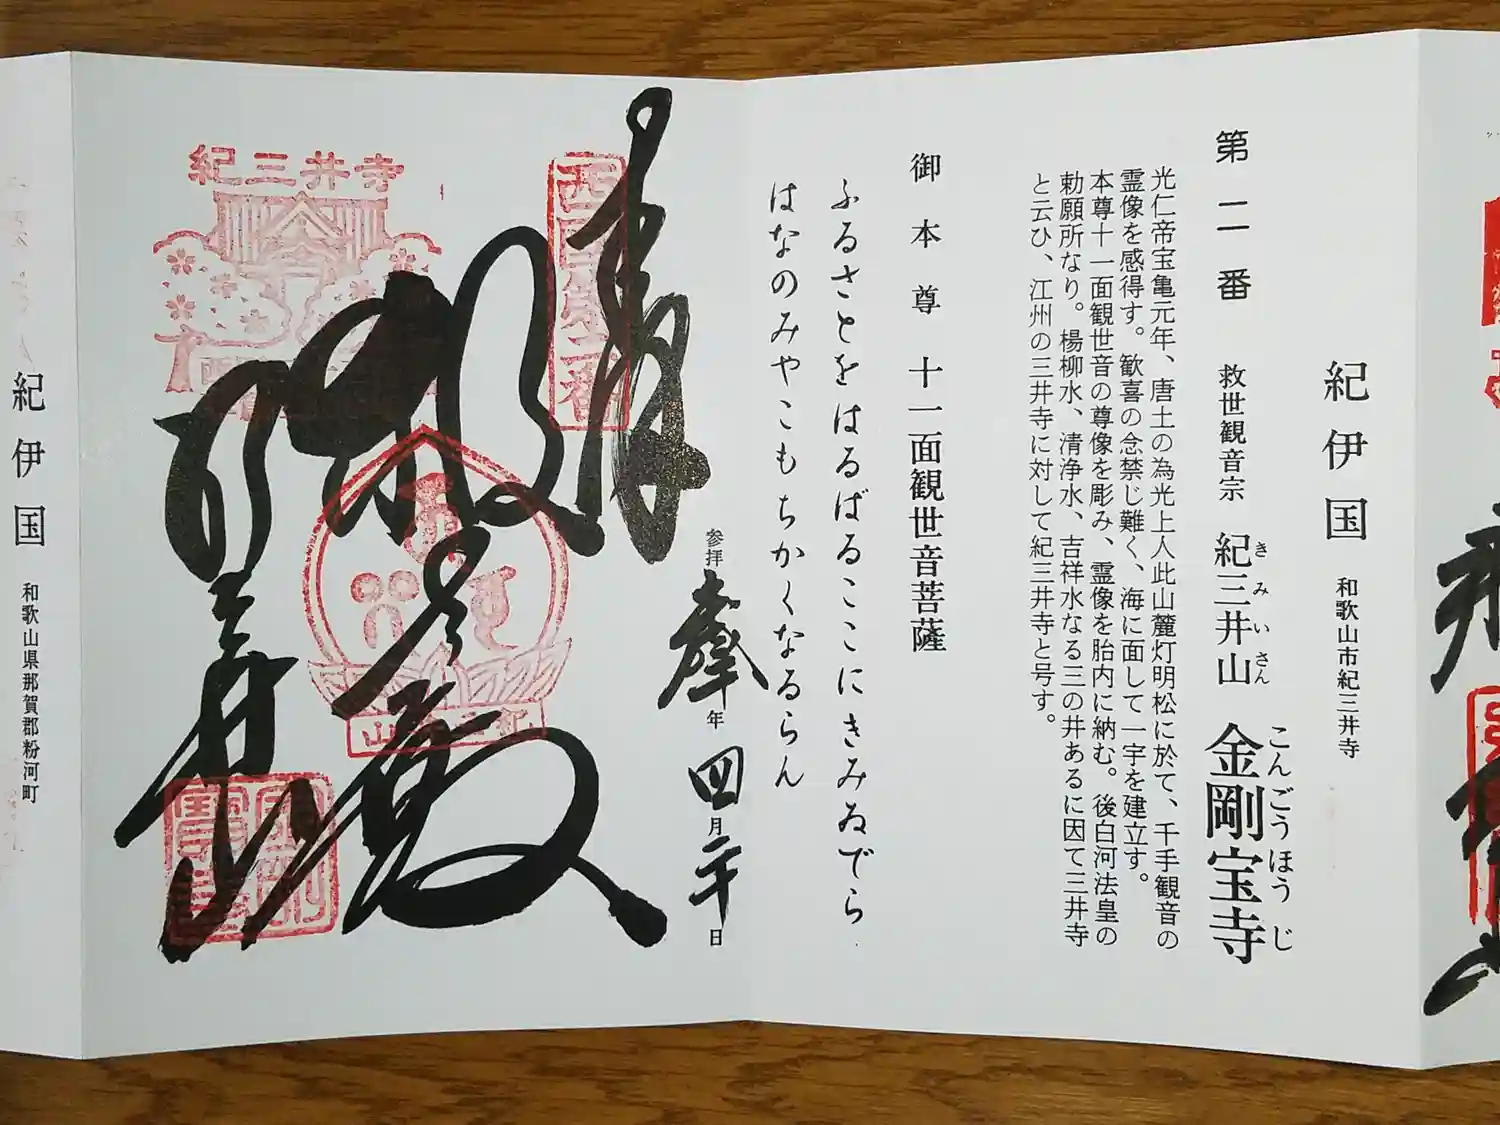 紀伊国 和歌山市紀三井寺
第二番 救世観音宗 紀三井山 金剛宝寺
きみいさん こんごうほうじ
光仁帝宝亀元年、唐土の為光上人此山麓灯明松に於て、千手観音の
霊像を感得す。歓喜の念禁じ難く、海に面して一宇を建立す。
本尊十一面観世音の尊像を彫み、霊像を胎内に納む。後白河法皇の
勅願所なり。楊柳水、清浄水、吉祥水なる三の井あるに因て三井寺
と云ひ、江州の三井寺に対して紀三井寺と号す。
御本尊 十一面観世音菩薩
ふるさとをはるばるここにきみゐでら
はなのみやこもちかくなるらん
参拝 奉拝年 四月二十日
西国第二番
紀三井寺
紀伊国 和歌山県那賀郡粉河町